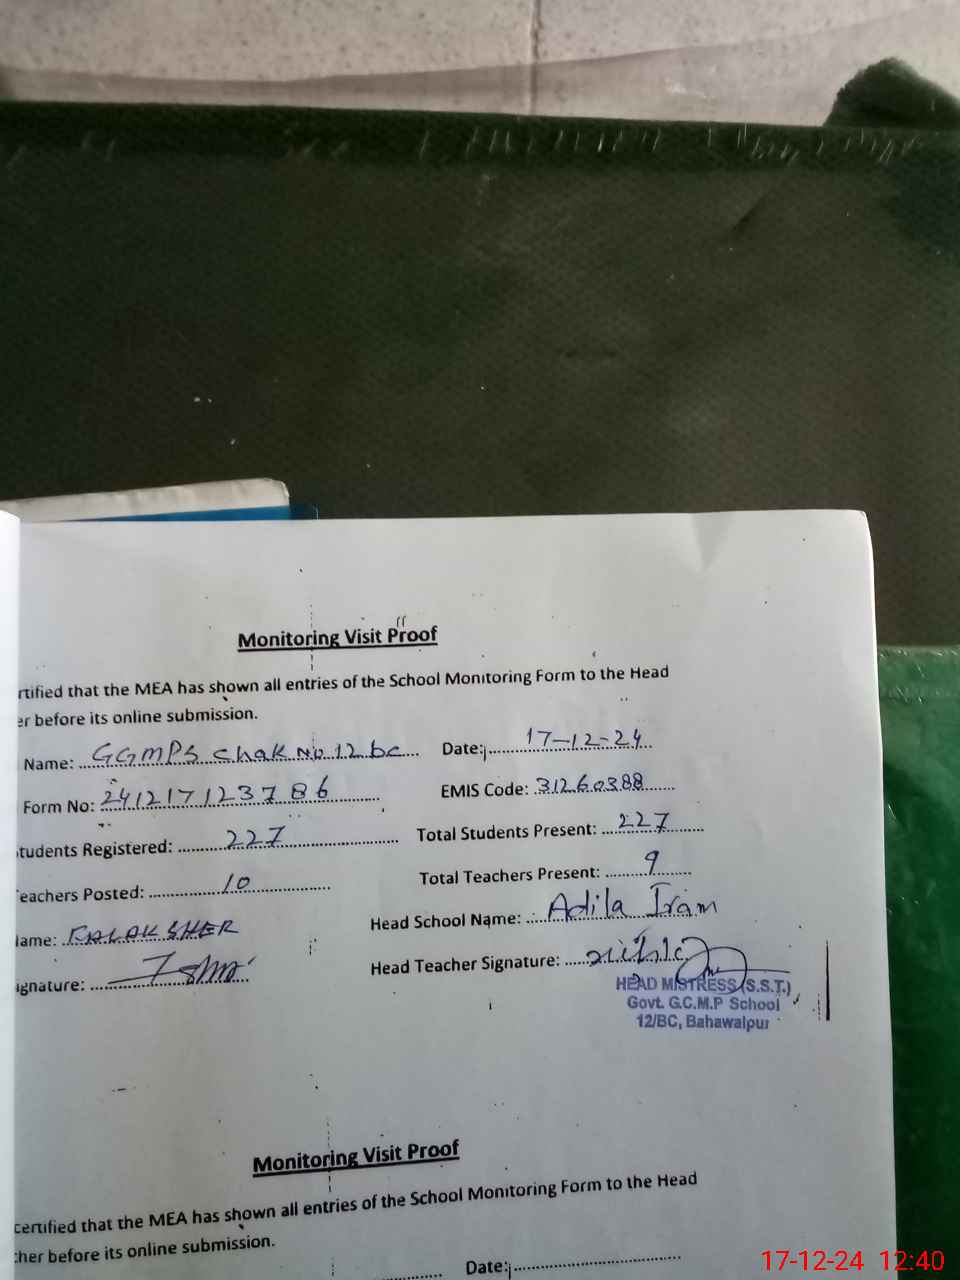 Monitoring Visit Proof
rtified that the MEA has shown all entries of the School Monitoring Form to the Head
er before its online submission.
Name: GGMPS Chak No 12 bc Date: 17-12-24
Form No: 241217123786 EMIS Code: 31260388
tudents Registered: 227 Total Students Present: 227
eachers Posted: 10 Total Teachers Present: 9
ame: FALAK SHER Head School Name: Adila Iram
ignature: Head Teacher Signature:
HEAD MISTRESS (S.S.T.)
Govt. G.C.M.P School
12/BC, Bahawalpur
Monitoring Visit Proof
certified that the MEA has shown all entries of the School Monitoring Form to the Head
her before its online submission.
Date:
17-12-24 12:40